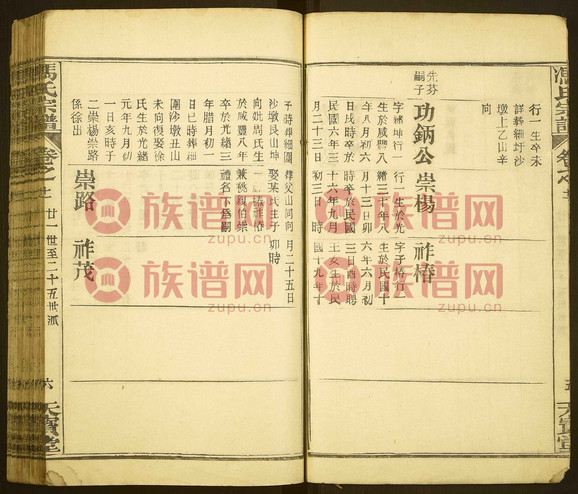 馮氏宗譜
卷之
行一生卒未
詳葬細圩沙
墩上乙山辛
向
先芬
嗣子
功鈵公
崇楊
祚椿
字
行一生於光
字子椿行一
生於咸豐八
緒三十年八
生於民國十
年
月十三日卯
六年六月初
日戌時卒於
時卒於民國
三日酉時聘
民國六年三
十六年九月
王女生於民
月二十三日
初三日
國十九年十
子時葬細圍
葬父山同向
月二十五日
沙墩艮山坤
娶某氏生子
卯時
向妣周氏生
一
祚椿
於咸豐八年
兼祧親伯崇
卒於光緒三
禮名下為嗣
年臘月初一
日巳時葬細
圍沙墩丑山
未向復娶徐
氏生於光緒
元年九月初
一日亥時子
二崇楊崇路
係徐出
崇路
祚茂
馮氏宗譜
卷之
廿一世至二十五世派
六
天寶堂
天寶堂
族谱网
zupu.cn
族谱网
zupu.cn
族谱网
zupu.cn
族谱网
zupu.cn
族谱网
zupu.cn
族谱网
zupu.cn